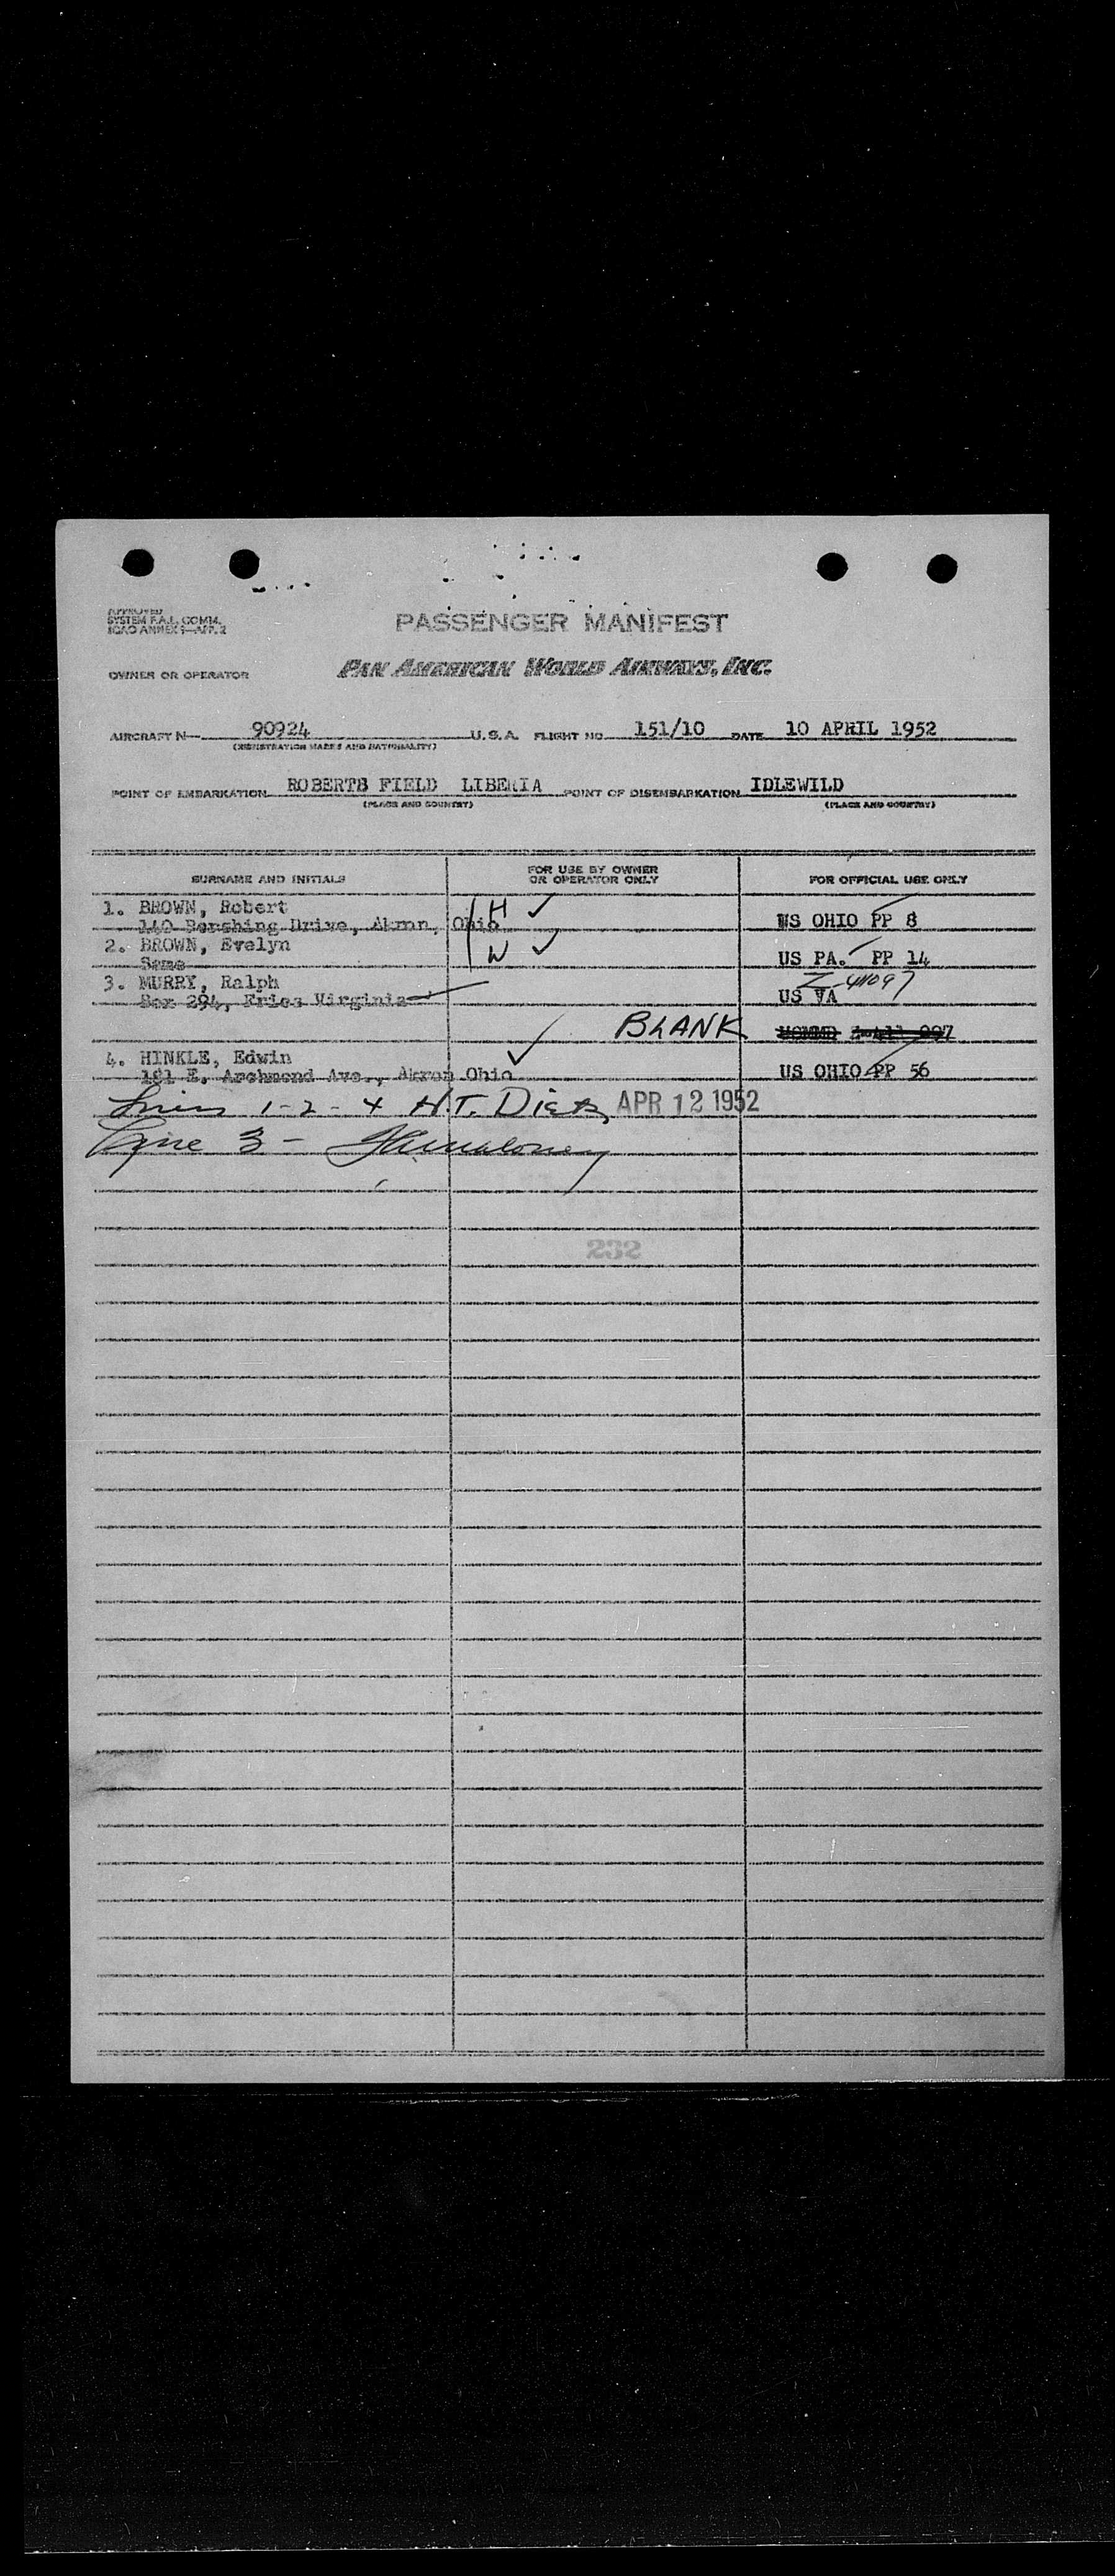 APPROVED
SYSTEM F.A.L. COMM.
ICAO ANNEX 9—APP. 2
PASSENGER MANIFEST
OWNER OR OPERATOR PAN AMERICAN WORLD AIRWAYS, INC.
AIRCRAFT N— 90924 U.S.A. FLIGHT NO. 151/10 DATE 10 APRIL 1952
(REGISTRATION MARKS AND NATIONALITY)
POINT OF EMBARKATION ROBERTS FIELD LIBERIA POINT OF DISEMBARKATION IDLEWILD
(PLACE AND COUNTRY) (PLACE AND COUNTRY)
SURNAME AND INITIALS FOR USE BY OWNER OR OPERATOR ONLY FOR OFFICIAL USE ONLY
1. BROWN, Robert H
140 Pershing Drive, Akron, Ohio US OHIO PP 8
2. BROWN, Evelyn W
Same US PA. PP 14
3. MURRY, Ralph Z-411097
Box 294, Fries Virginia US VA
BLANK
4. HINKLE, Edwin
181 E. Archmond Ave., Akron Ohio US OHIO PP 56
Lines 1-2-4 H.T. Dietz APR 12 1952
Line 3 -
232